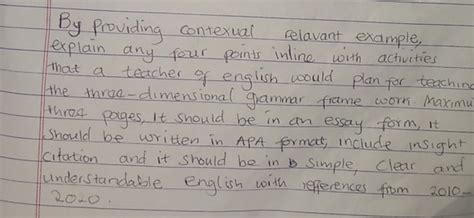 By providing contexual relavant example,
explain any four points inline with activities
that a teacher of english would plan for teaching
the three-dimensional grammar frame worn. Maximu
three pages, It should be in an essay form, it
should be written in APA format, include insight
citation and it should be in simple, clear and
understandable english with references from 2010-
2020.